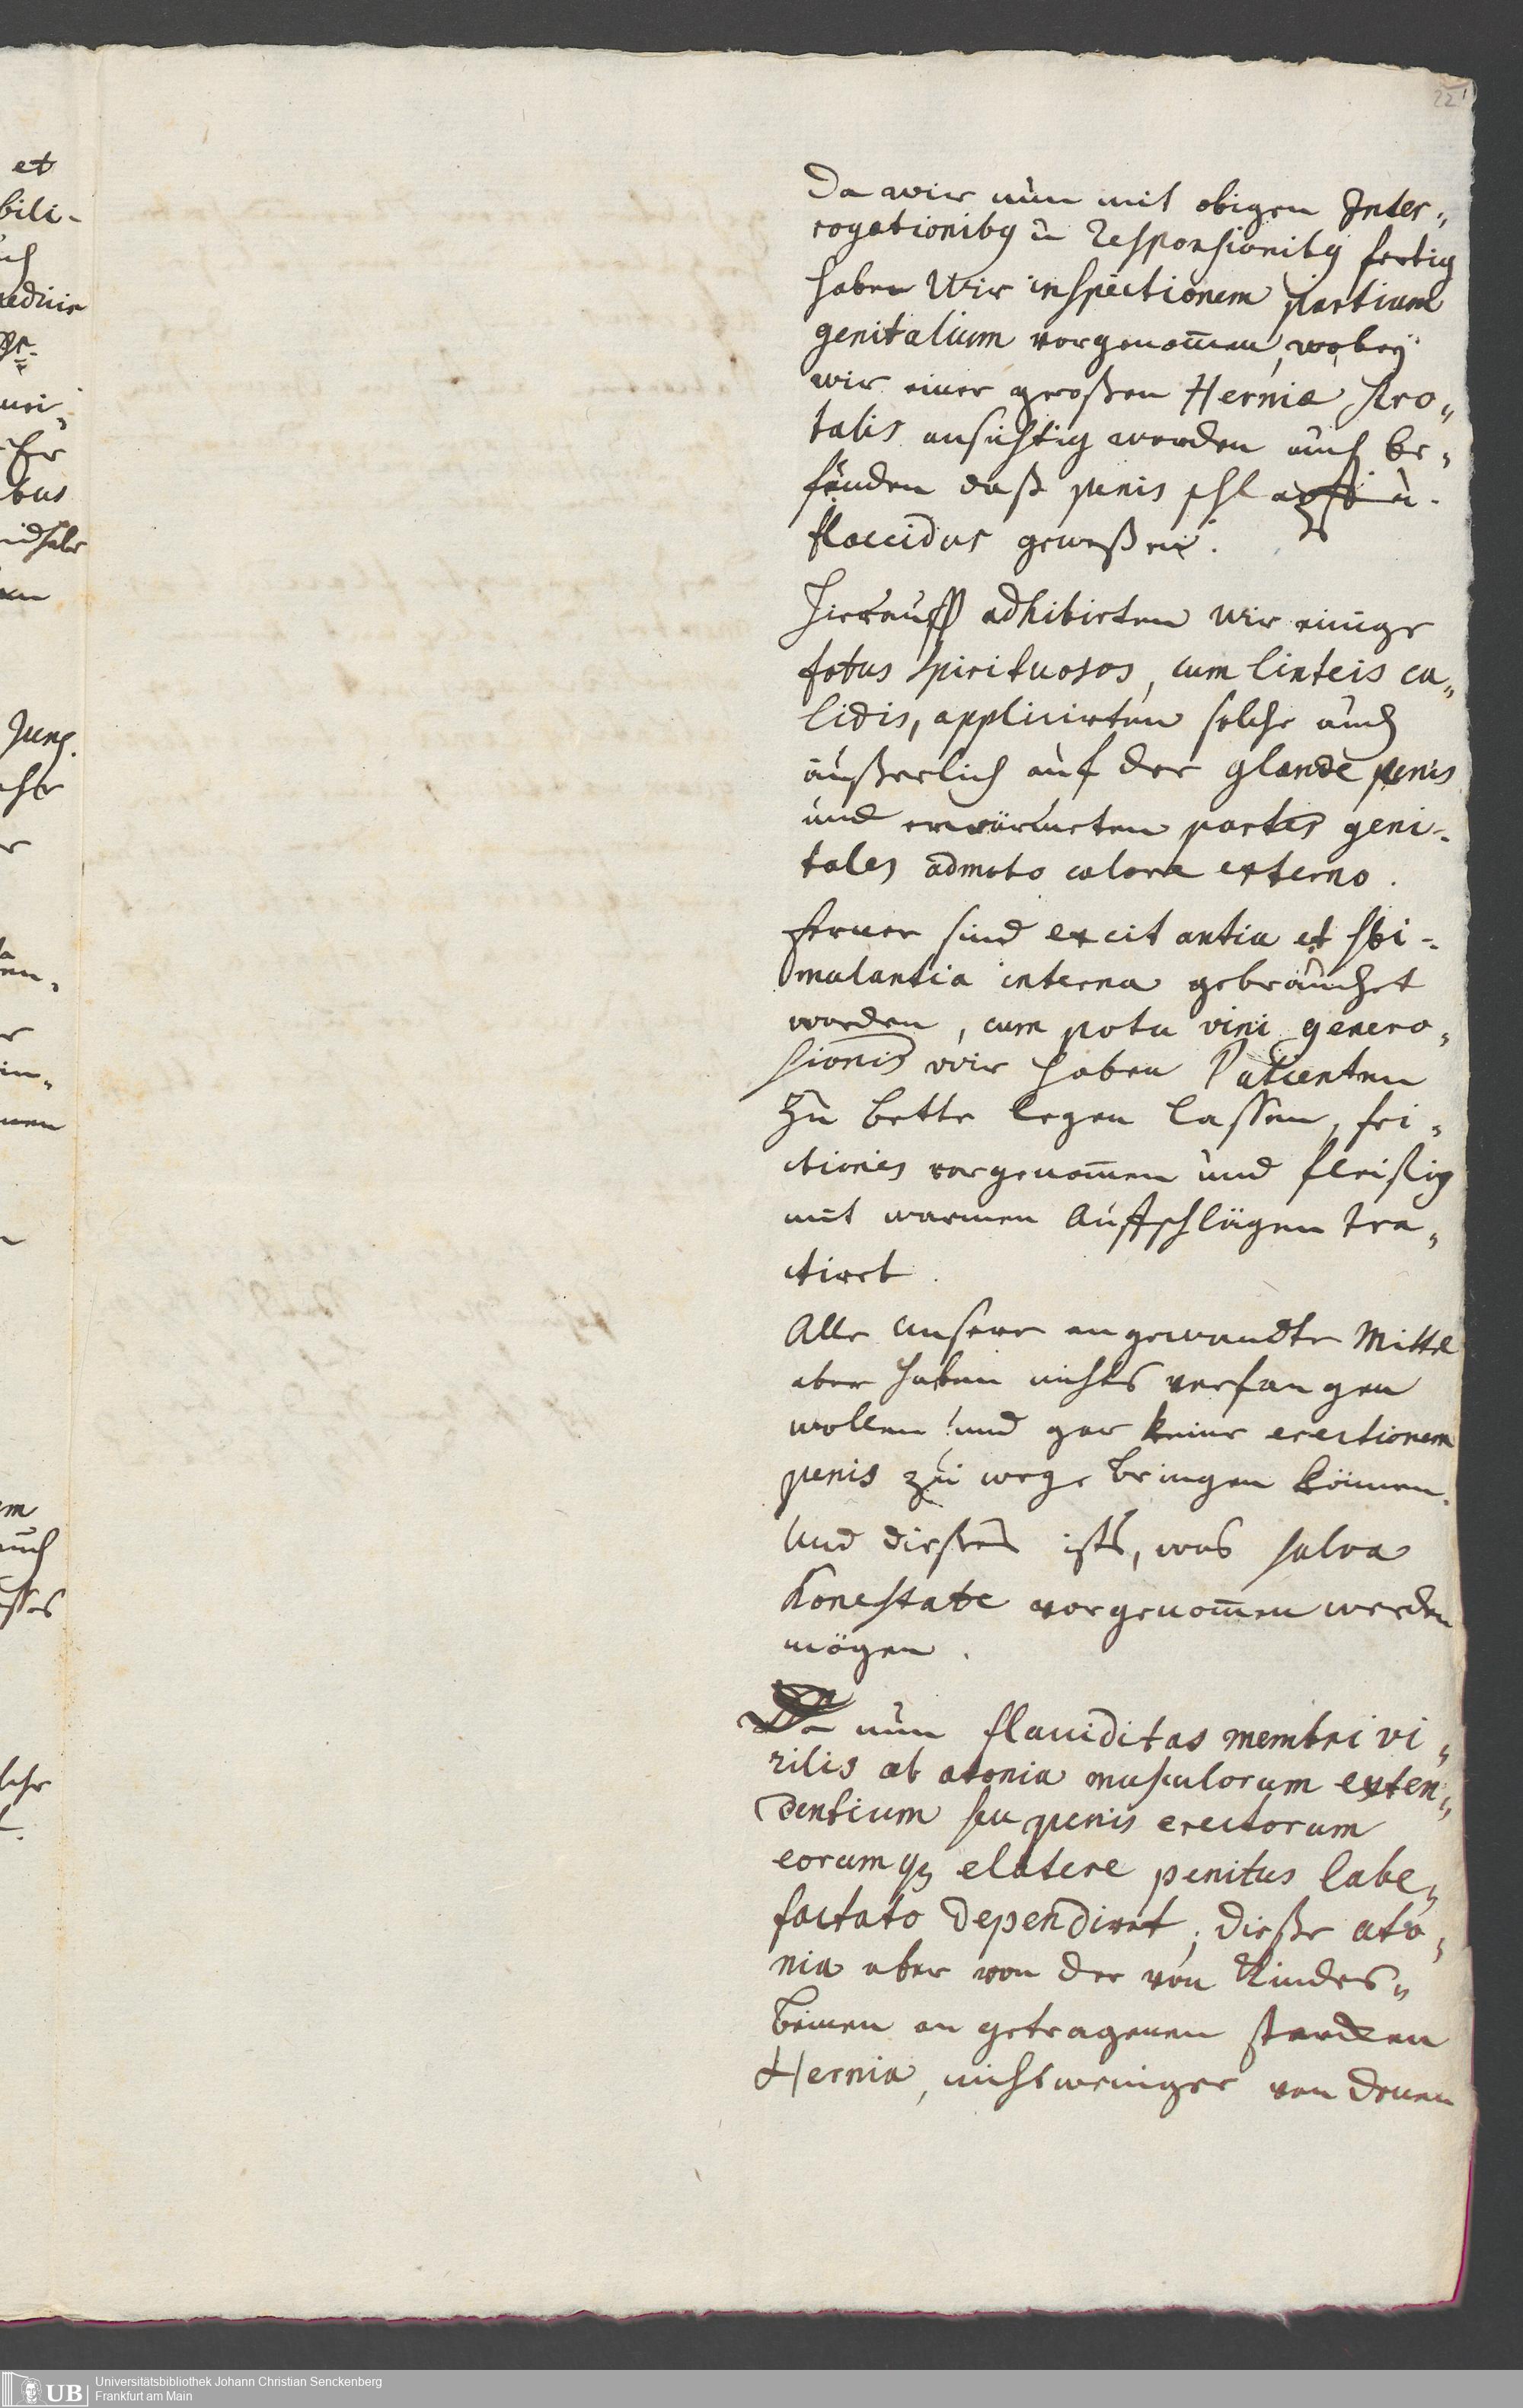 22
Da wir nun mit obigen Inter„
rogationibꝰ u Responsionibꝰ fertig
haben Wir inspectionem partium
genitalium vorgenom̄en, wobey
wir einer großen Herniæ scro„
talis ansichtig worden auch be„
fünden daß penis schlapp u.
flaccidus geweßen.
Hierauff adhibirten wir einige
fotus spirituosos, cum linteis ca„
lidis, applicirten solche auch
äußerlich auf der glande penis
und erwärmeten partes geni-
tales admoto calore externo.
ferner sind excitantia et sti-
mulantia interna gebrauchet
worden, cum potu vini genero„
sioris wir haben Patienten
zu bette legen lassen, fri„
ctiones vorgenom̄en und fleißig
mit warmen Auffschlägen tra„
ctirt.
Alle unsere angewandte Mittel
aber haben nichts verfangen
wollen und gar keine erectionem
penis zu wege bringen können.
Und dießes ists, was salva
honestate vorgenom̄en werden
mögen.
Da nun flacciditas membri vi„
rilis ab atonia musculorum exten„
dentium seu penis erectorum
eorumqꝫ elatere penitus labe„
factato dependiret, dieße ato„
nia aber von der von Kindes„
beinen an getragenen starcken
Hernia, nicht weniger von denen
et
bili-
bus
Jung.
Universitätsbibliothek Johann Christian Senckenberg
Frankfurt am Main
UB